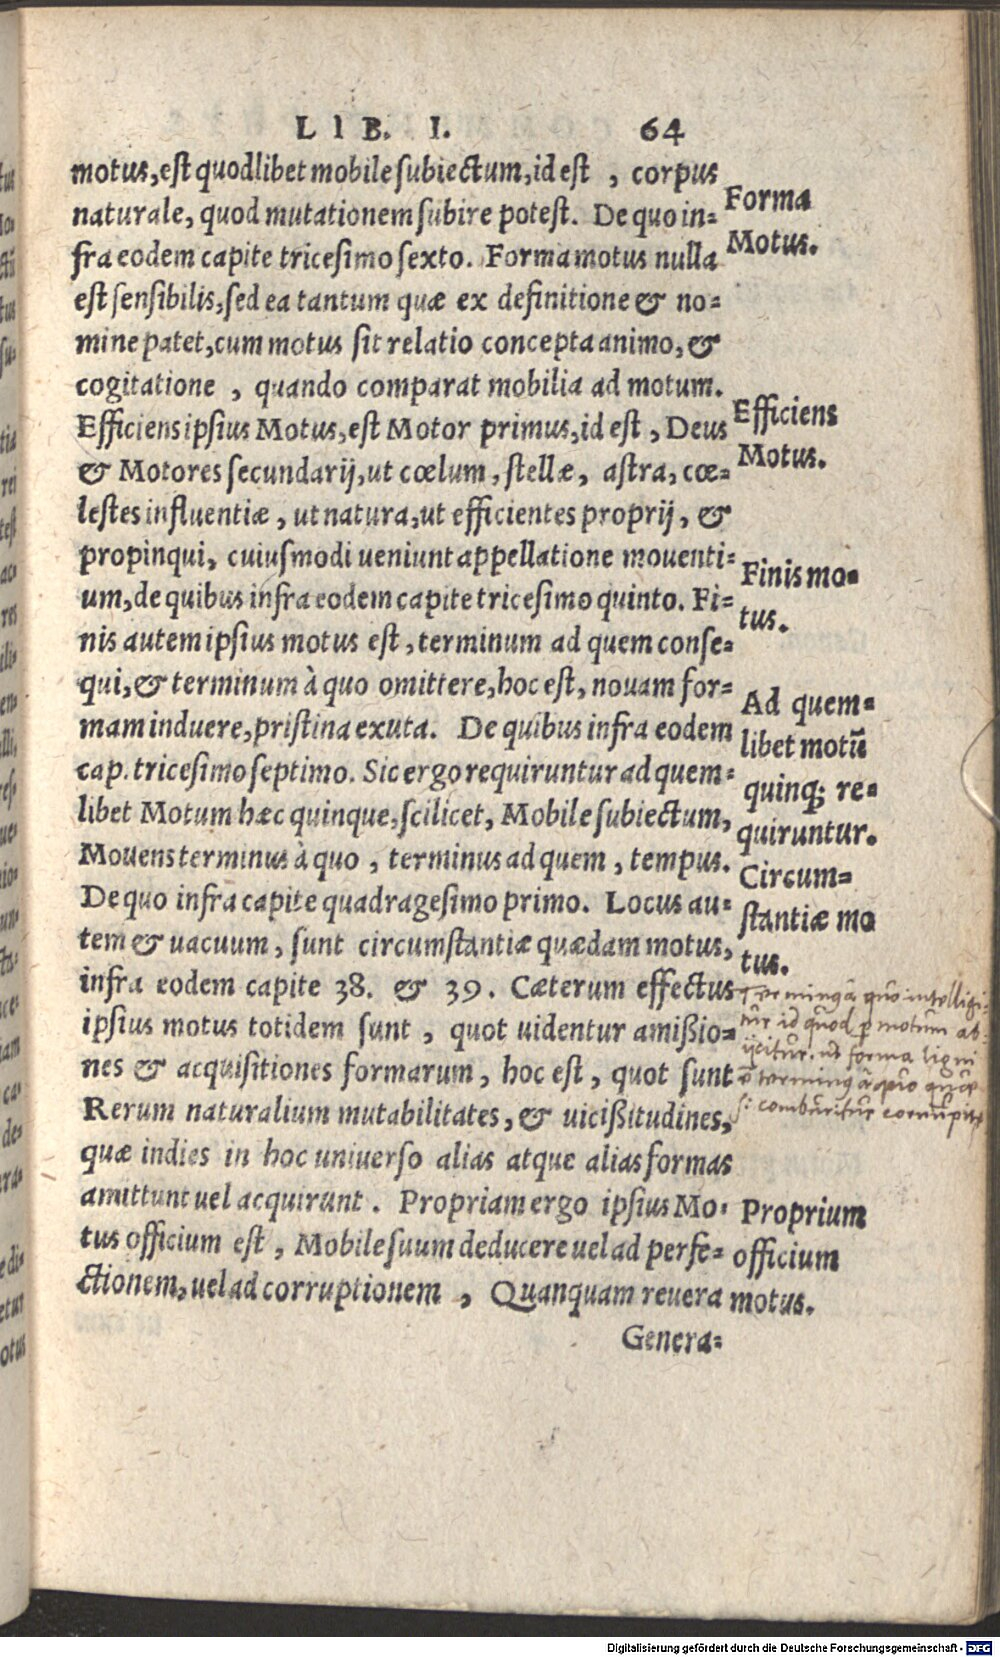 LIB. I. 64
motus, est quodlibet mobile subiectum, id est , corpus
naturale, quod mutationem subire potest. De quo in=
fra eodem capite tricesimo sexto. Forma motus nulla
est sensibilis, sed ea tantum quæ ex definitione & no=
mine patet, cum motus sit relatio concepta animo, &
cogitatione , quando comparat mobilia ad motum.
Efficiens ipsius Motus, est Motor primus, id est , Deus
& Motores secundarij, ut cœlum , stellæ , astra, cœ=
lestes influentiæ , ut natura, ut efficientes proprij , &
propinqui, cuiusmodi ueniunt appellatione mouenti=
um, de quibus infra eodem capite tricesimo quinto. Fi=
nis autem ipsius motus est , terminum ad quem conse=
qui, & terminum à quo omittere, hoc est, nouam for=
mam induere, pristina exuta. De quibus infra eodem
cap. tricesimo septimo. Sic ergo requiruntur ad quem=
libet Motum hæc quinque, scilicet, Mobile subiectum,
Mouens terminus à quo , terminus ad quem , tempus.
De quo infra capite quadragesimo primo. Locus au=
tem & uacuum , sunt circumstantiæ quædam motus,
infra eodem capite 38. & 39. Cæterum effectus
ipsius motus totidem sunt , quot uidentur amißio=
nes & acquisitiones formarum , hoc est , quot sunt
Rerum naturalium mutabilitates, & uicißitudines,
quæ indies in hoc uniuerso alias atque alias formas
amittunt uel acquirunt . Propriam ergo ipsius Mo=
tus officium est , Mobile suum deducere uel ad perfe=
ctionem, uel ad corruptionem , Quanquam reuera
Genera=
Forma
Motus.
Efficiens
Motus.
Finis mo=
tus.
Ad quem=
libet motū
quinq; re=
quiruntur.
Circum=
stantiæ mo
tus.
à quo intelligi
tur id quod p motum ab
ijcitur. ut forma ligni
à quo
si comburitur
Proprium
officium
motus.
Digitalisierung gefördert durch die Deutsche Forschungsgemeinschaft - DFG